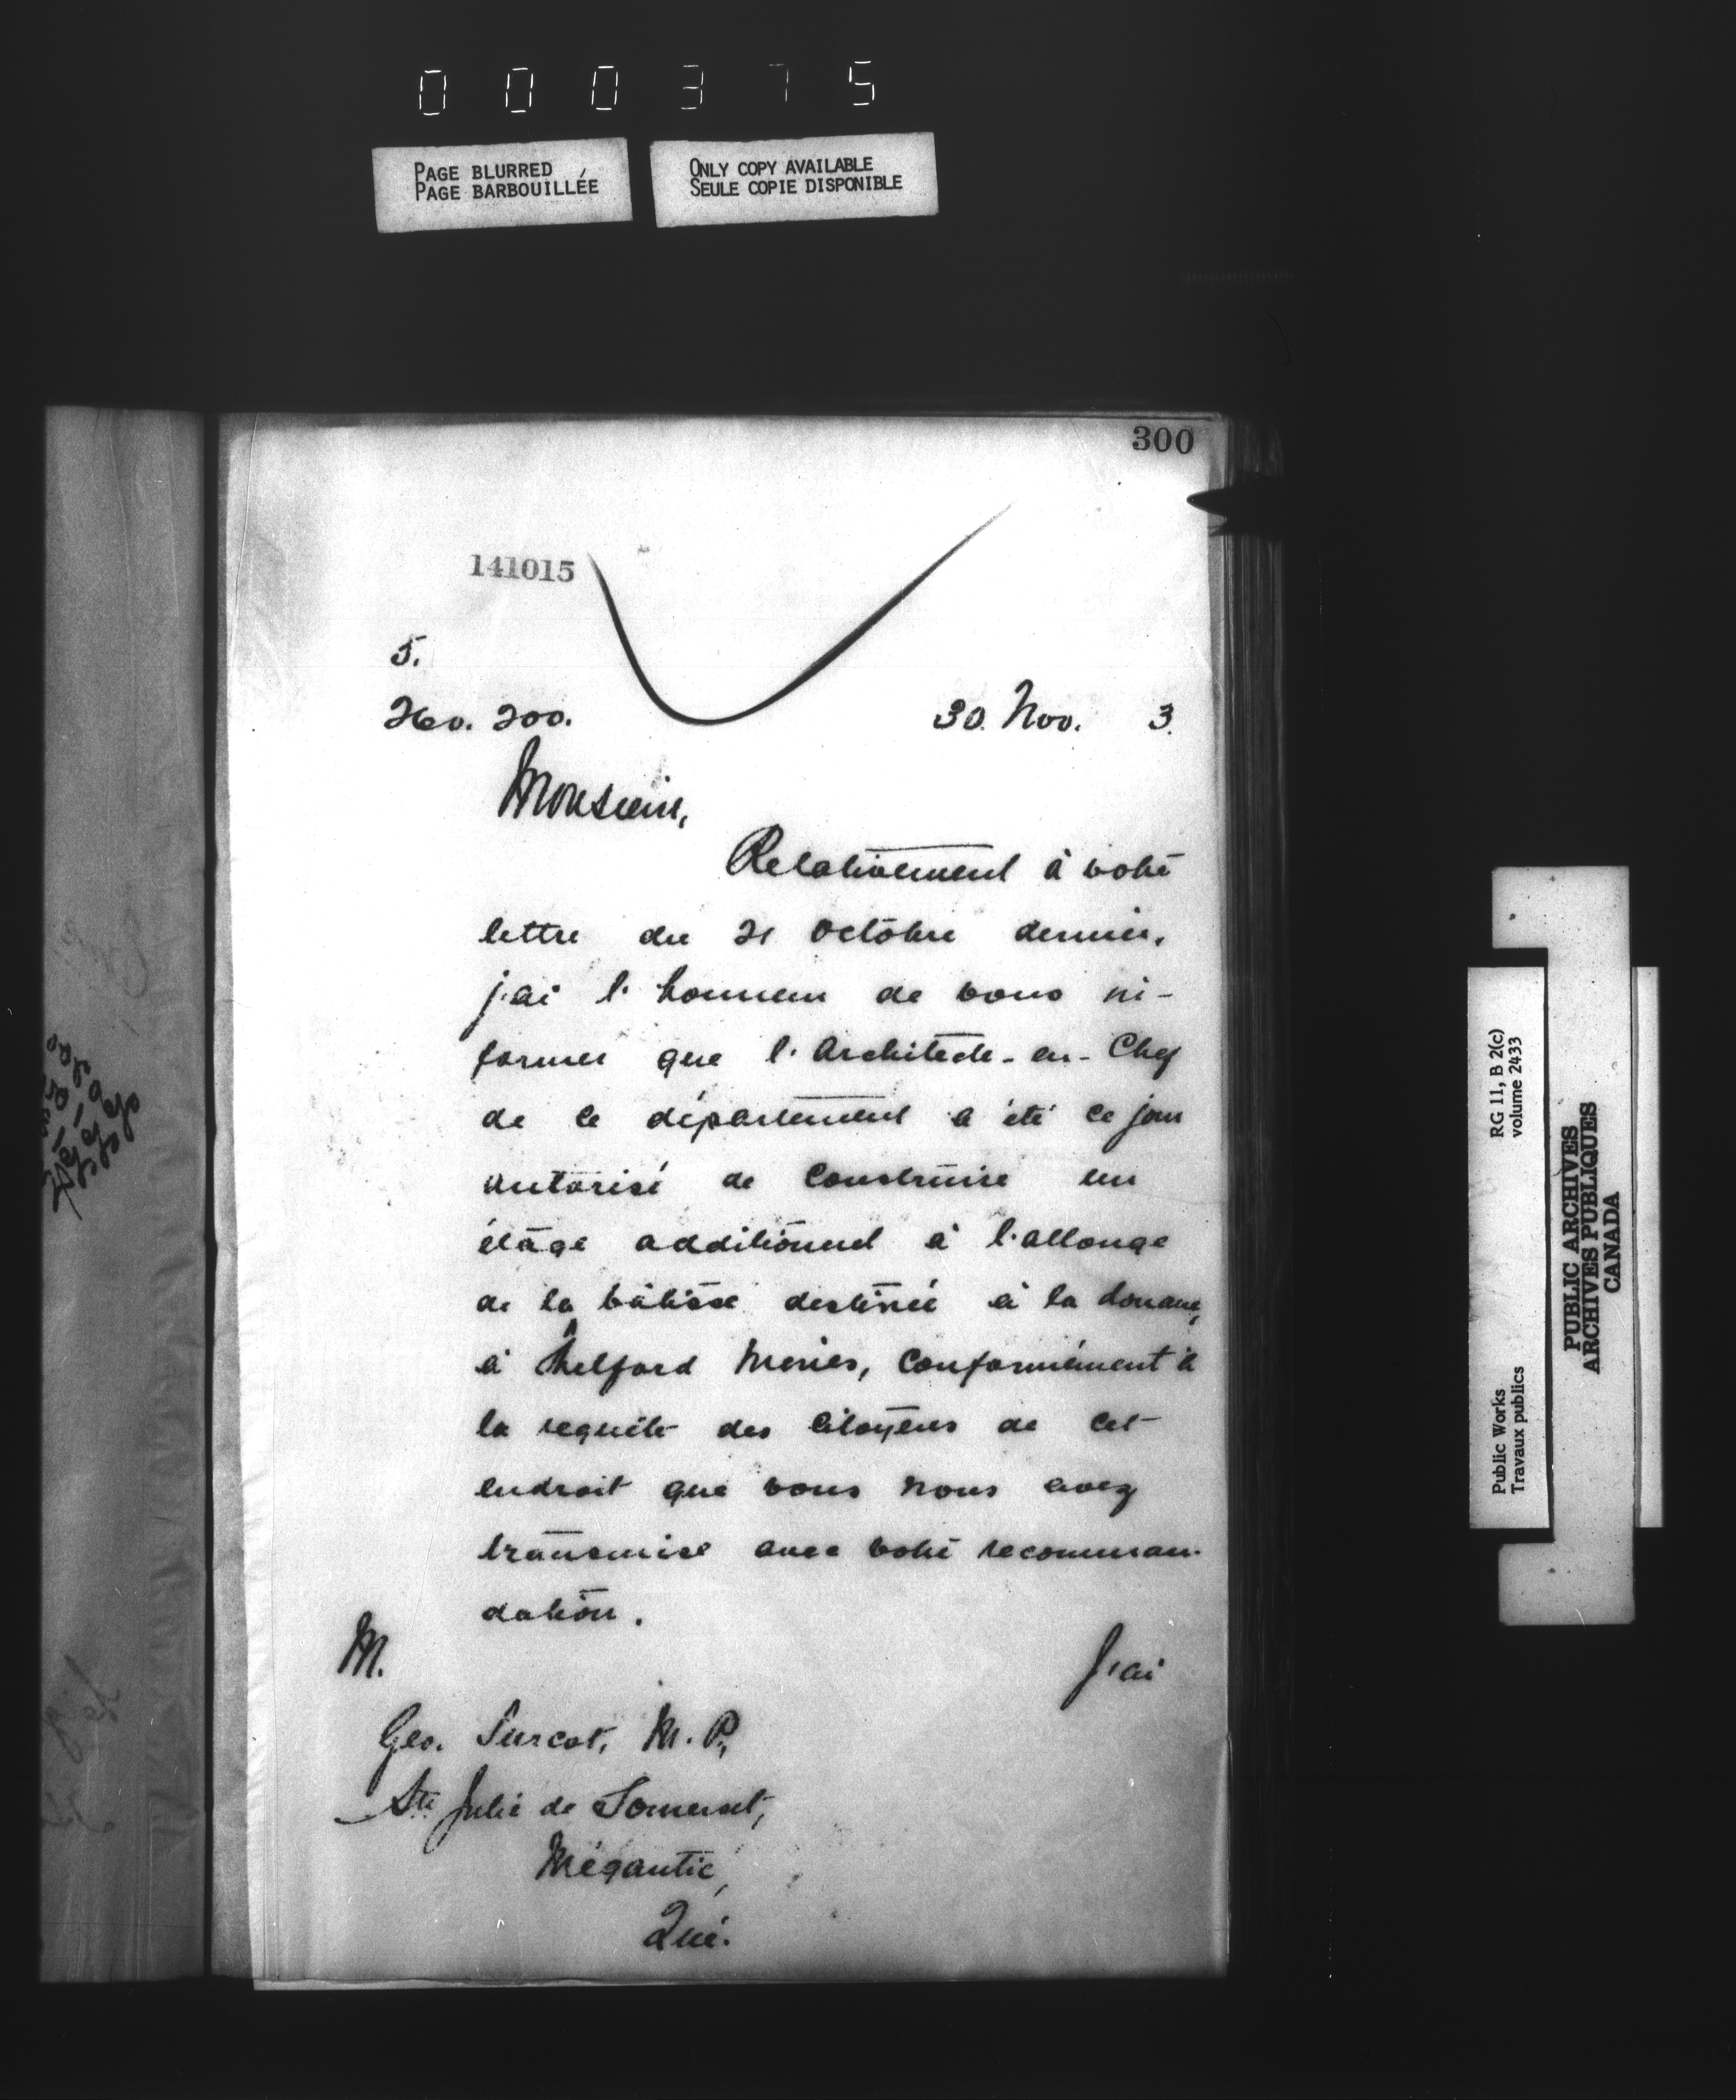 0 0 0 3 7 5
PAGE BLURRED
PAGE BARBOUILLÉE
ONLY COPY AVAILABLE
SEULE COPIE DISPONIBLE
300
141015
5.
260. 200.
30. Nov. 3.
Monsieur,
Relativement à votre
lettre du 21 Octobre dernier,
j'ai l'honneur de vous in-
former que l'Architecte-en-Chef
de ce département a été ce jour
autorisé de construire un
étage additionnel à l'allonge
de la bâtisse destinée à la douane,
à Thelford Mines, conformément à
la requête des citoyens de cet
endroit que vous nous avez
transmise avec votre recomman-
dation.
J'ai
M.
Geo. Turcot, M.P.,
Ste Julie de Somerset,
Mégantic,
Qué.
RG 11, B 2(c)
volume 2433
Public Works
Travaux publics
PUBLIC ARCHIVES
ARCHIVES PUBLIQUES
CANADA